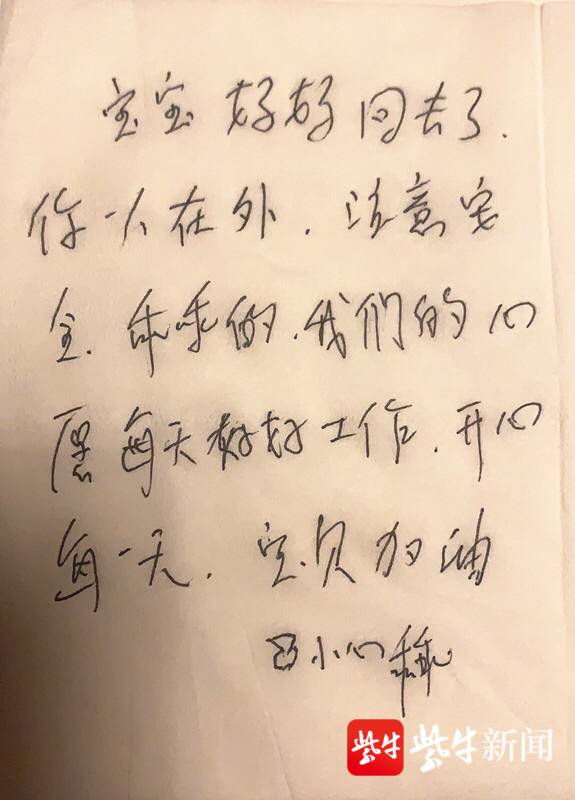 宝宝好好回去了.
你一人在外.注意安
全.乖乖的.我们的心
愿每天好好工作.开心
每一天.宝贝加油
小心
紫牛 紫牛新闻